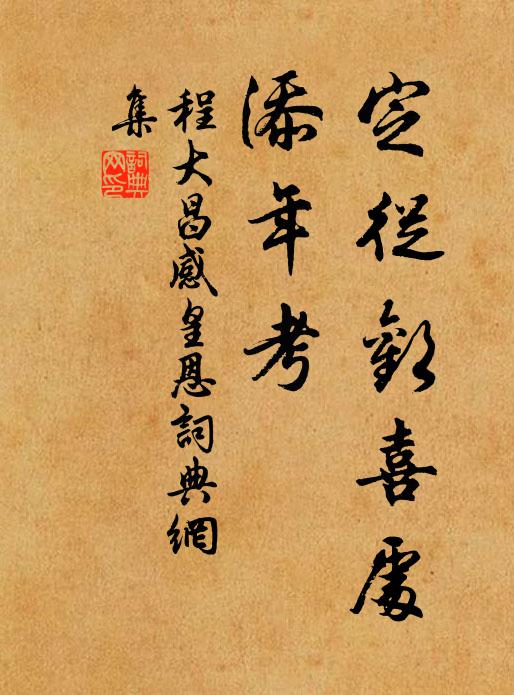 定從歡喜處
添年考
程大昌感皇恩詞典網
集
詞典
网印